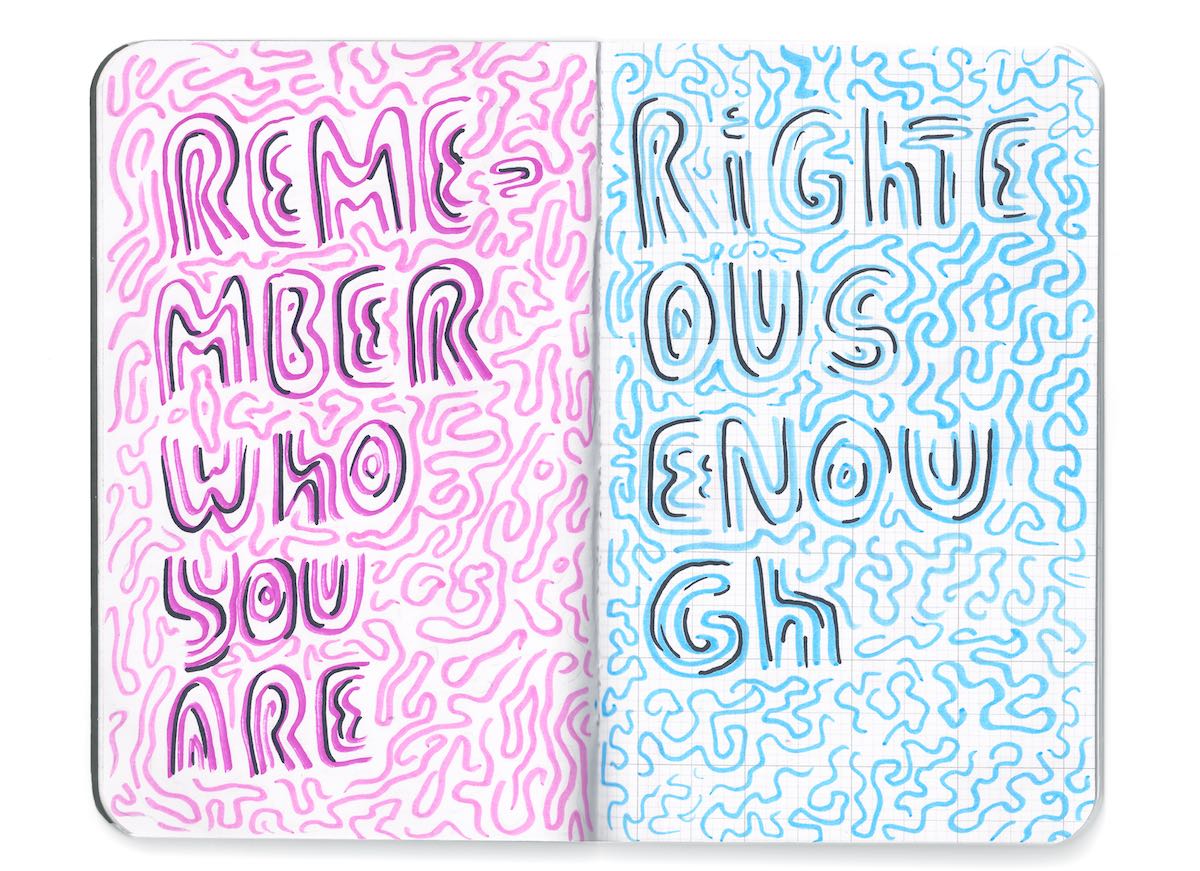 REME-
MBER
WhO
YOU
ARE
RiGhTE
OUS
ENOU
Gh